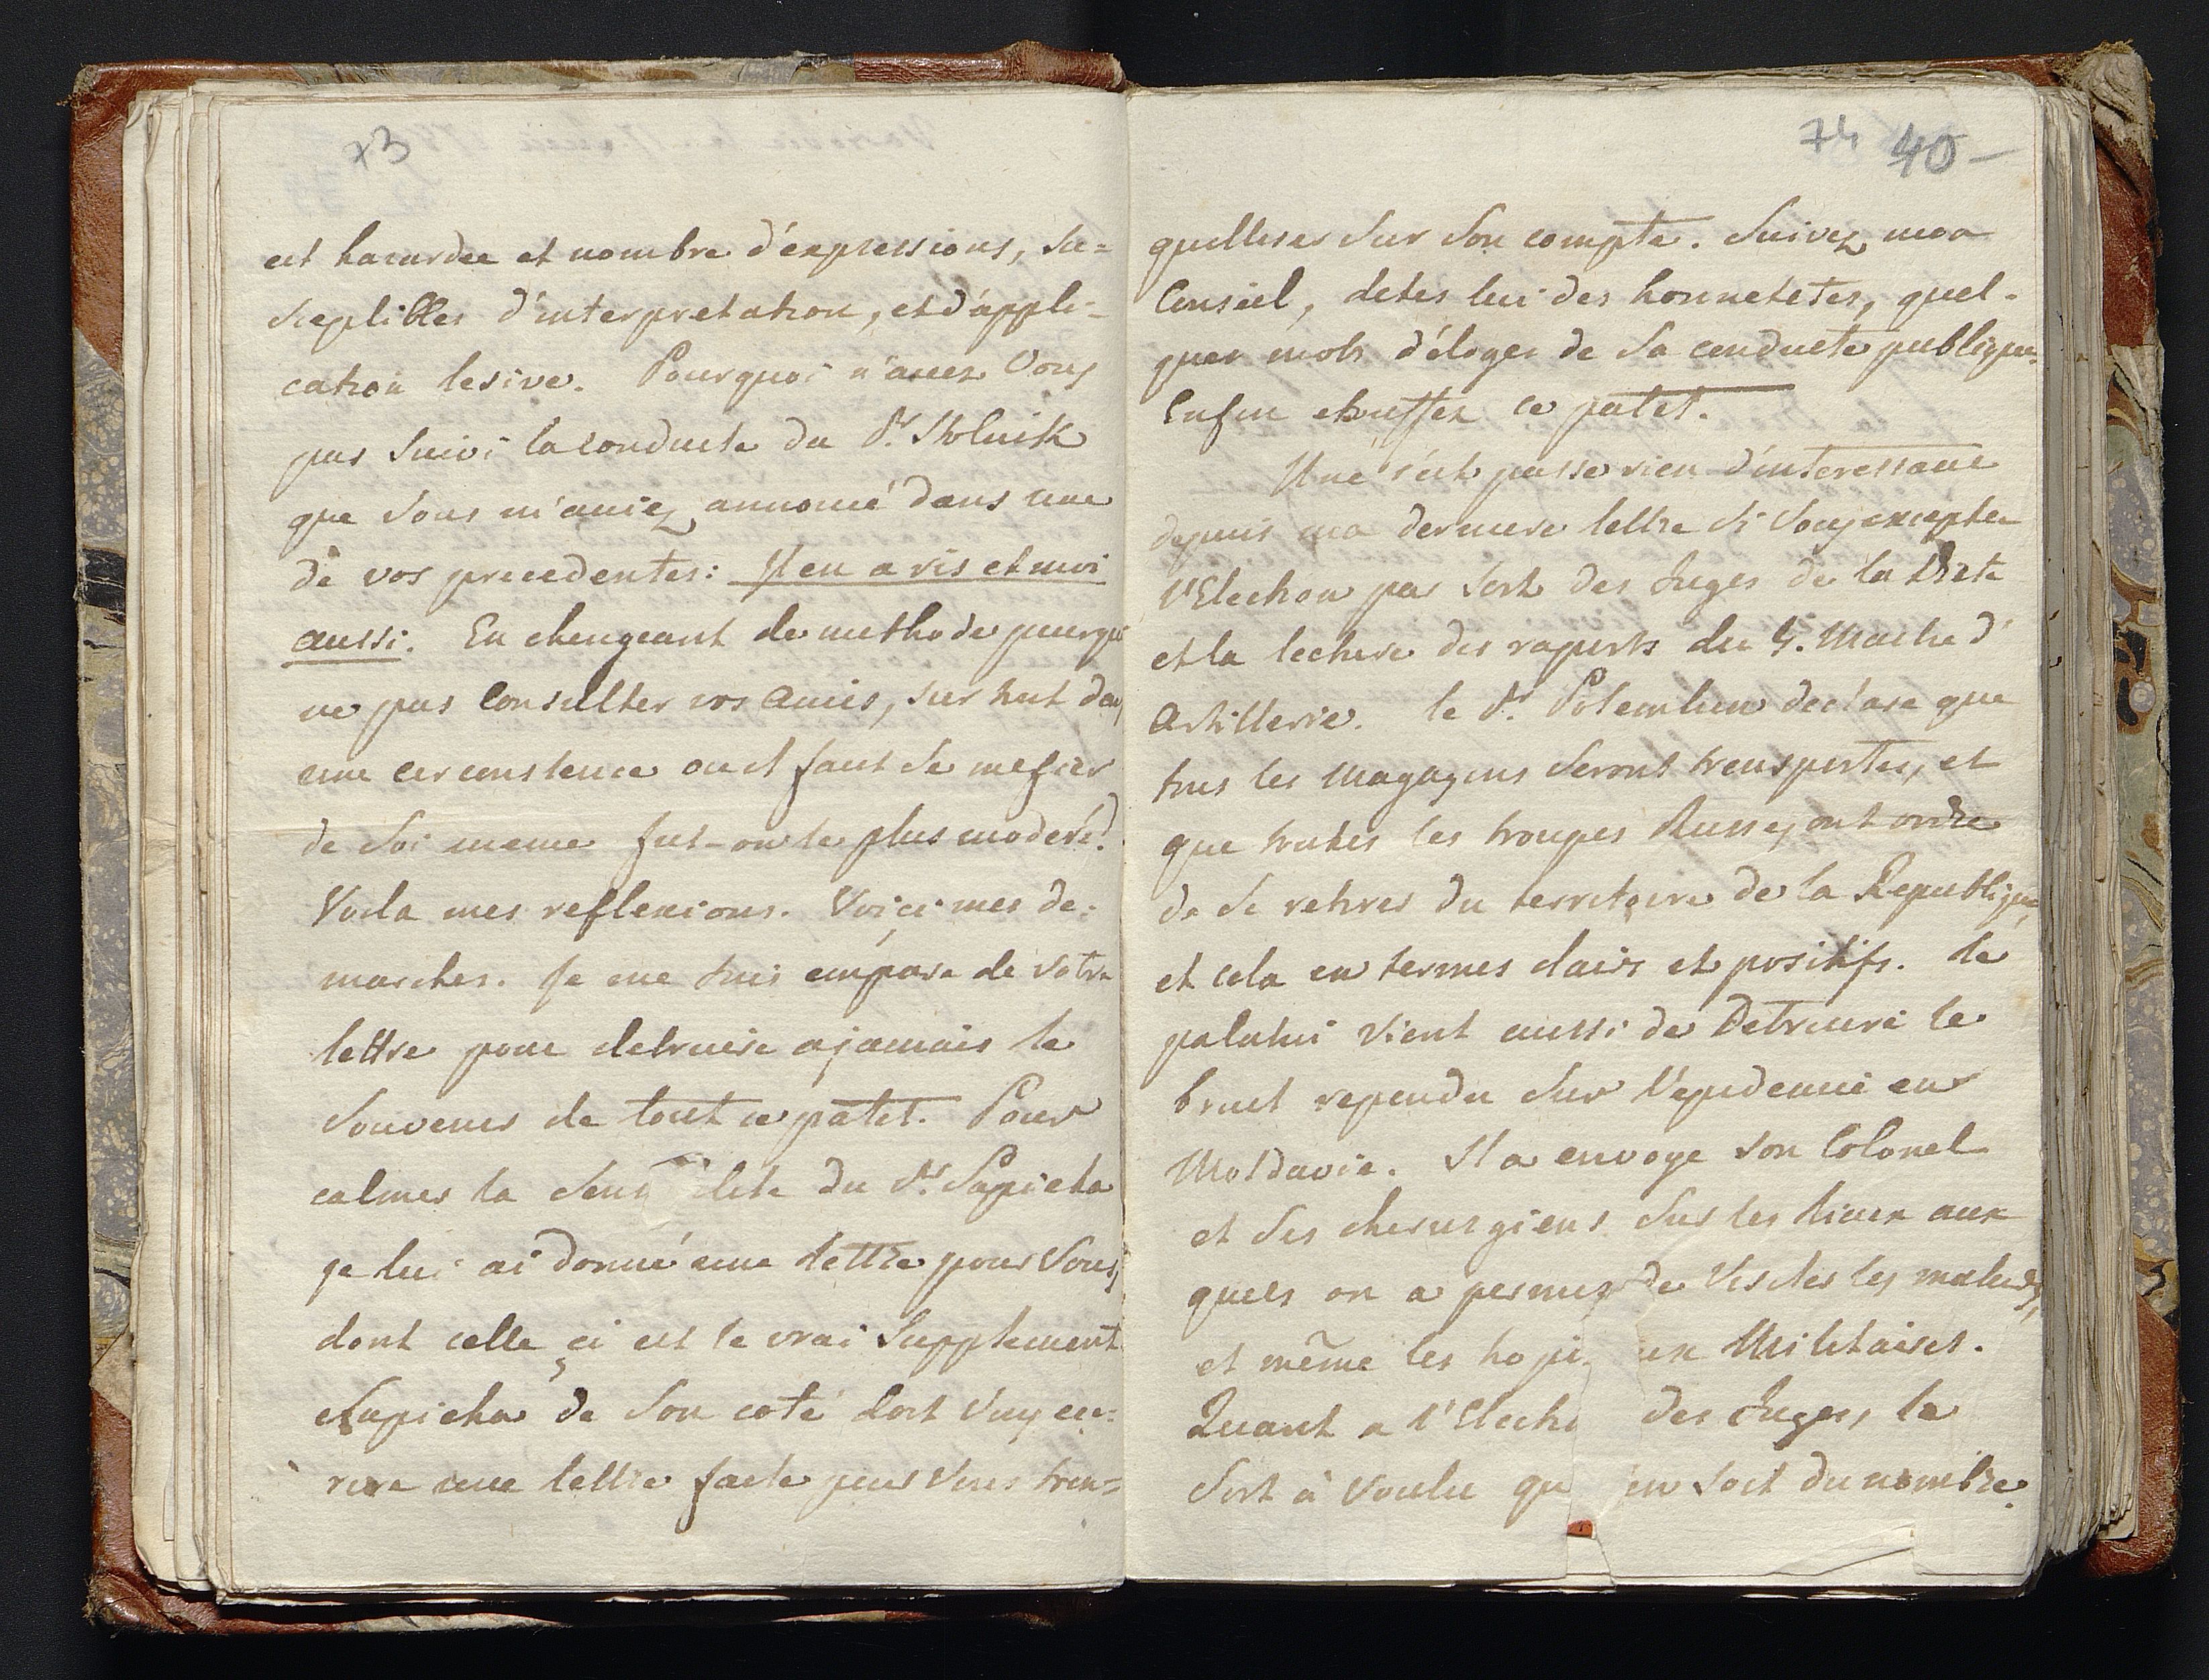 73
est hazardee et nombre d'expressions, su=
sceptibles d'interpretation, et d'appli-
cation lesive. Pourquoi n'avez Vous
pas suivi la conduite du Sr. Stolnik
que Vous m'aviez annoncé dans une
de vos precedentes: Il en a ris et moi
aussi. En changeant de methode pourquoi
ne pas Consulter vos amis, sur tout dans
une circonstence ou il faut se mefier
de soi meme fut-on le plus moderé?
Voila mes reflexions. Voici mes de=
marches. Je me suis emparé de votre
lettre pour detruire a jamais le
souvenir de tout ce patet. Pour
calmer la sens ilité du Sr. Sapieha
je lui ai donné une lettre pour Vous,
dont celle ci est le vrai Supplement
Sapieha de son coté doit Vous ec=
rire une lettre faite pour Vous tran=
74 40-
quelliser sur son compte. Suivez mon
Conseil, dites lui des honnetetés, quel-
ques mots d'éloges de sa conduite publique.
Enfin etouffez ce patet.
Il ne s'est passé rien d'interessant
depuis ma derniere lettre si Vous exceptez
l'Election par sort des Juges de la Diete
et la lecture des raports du G. Maitre d'
Artillerie. le Sr. Potemkin declare que
tous les Magazins seront transportés, et
que toutes les troupes Russes ont ordre
de se retirer du territoire de la Republique,
et cela en termes clairs et positifs. Le
palatin vient aussi de Detruire le
bruit rependu sur l'epidemie en
Moldavie. Il a envoye son Colonel
et ses cherurgiens sur les lieux aux
quels on a permis de visiter les malades,
et même les hopi ux Militaires.
Quant a l'Electi des Juges, le
sort à voulu qu j'en soit du nombre.